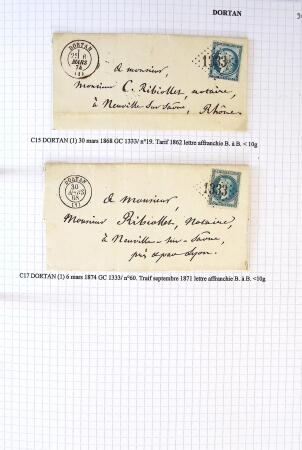 DORTAN
DORTAN
2E 6
MARS
74
(1)
1333
à monsieur,
Monsieur C. Ribiollet, notaire,
à Neuville-sur-Saône,
Rhône.
C15 DORTAN (1) 30 mars 1868 GC 1333/ n°19. Tarif 1862 lettre affranchie B. à B. < 10g
DORTAN
30
MARS
68
(1)
1333
à Monsieur,
Monsieur Ribiollet, Notaire,
à Neuville-sur-Saône,
près Lyon.
C17 DORTAN (1) 6 mars 1874 GC 1333/ n°60. Traif septembre 1871 lettre affranchie B. à B. <10g